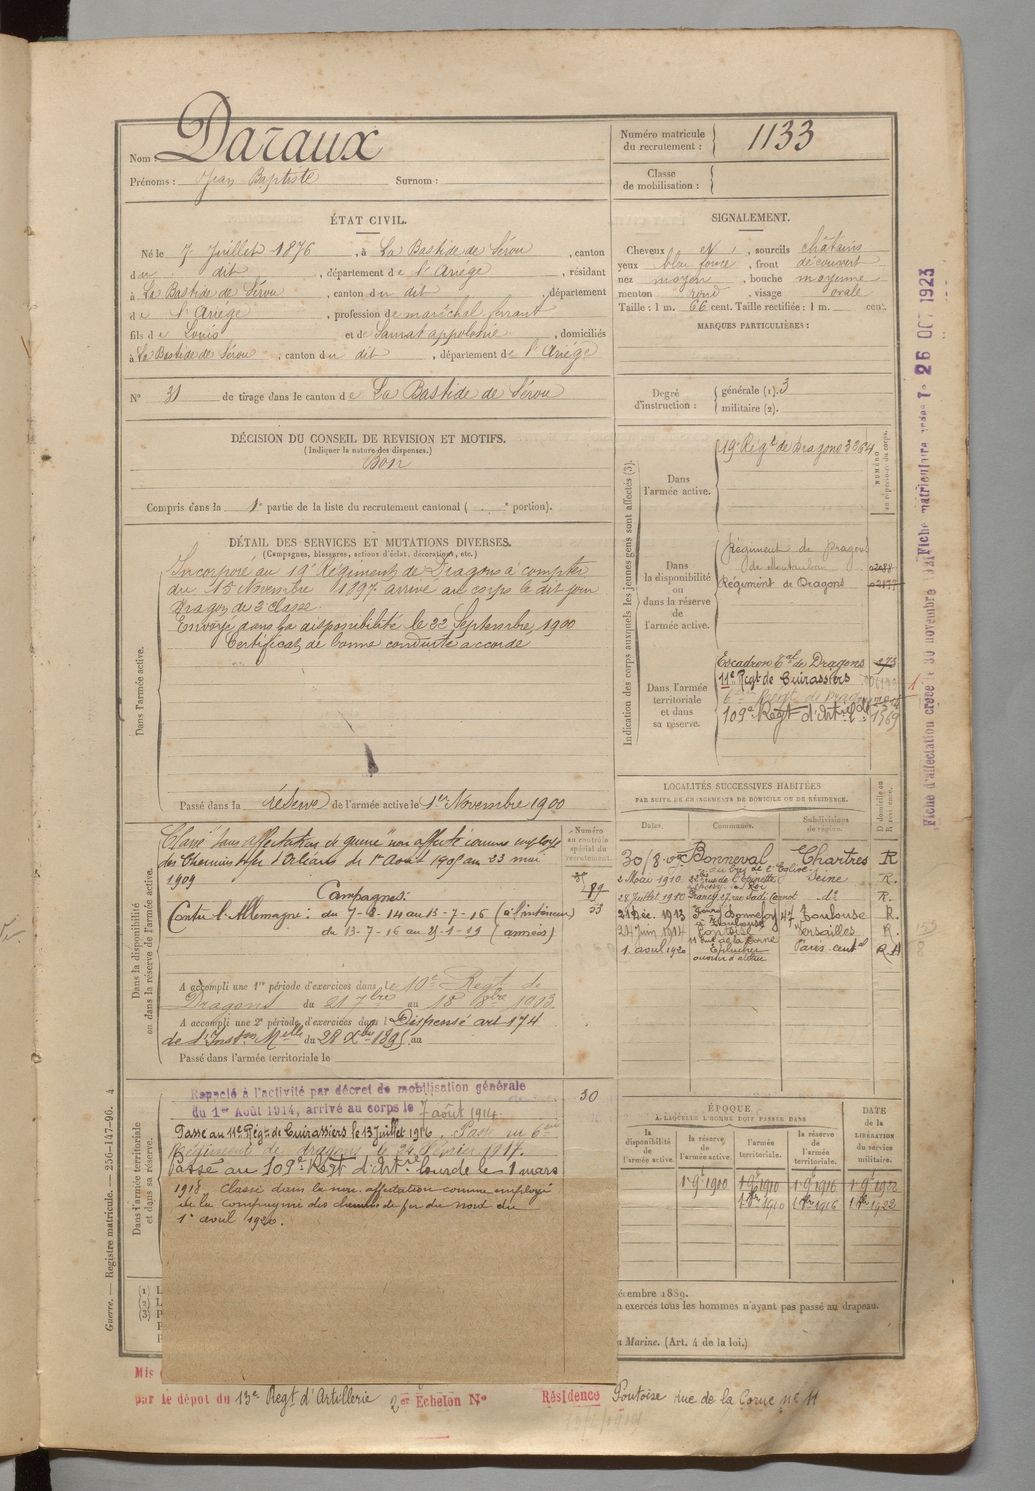 Nom : Daraux
Numéro matricule du recrutement : 1133
Prénoms : Jean Baptiste Surnom :
Classe de mobilisation :
ÉTAT CIVIL.
Né le 7 Juillet 1876, à La Bastide de Sérou, canton
du dit, département de l'Ariège, résidant
à La Bastide de Sérou, canton du dit, département
de l'Ariège, profession de maréchal ferrant
fils de Louis et de Saurat appolonie, domiciliés
à La Bastide de Sérou, canton du dit, département de l'Ariège
SIGNALEMENT.
Cheveux et, sourcils châtains
yeux bleu foncé, front découvert
nez moyen, bouche moyenne
menton rond, visage ovale
Taille : 1 m. 66 cent. Taille rectifiée : 1 m. cent.
MARQUES PARTICULIÈRES :
N° 31 de tirage dans le canton de La Bastide de Sérou
Degré d'instruction : générale (1). 3
militaire (2).
DÉCISION DU CONSEIL DE REVISION ET MOTIFS.
(Indiquer la nature des dispenses.)
Bon
Compris dans la 1e partie de la liste du recrutement cantonal ( e portion).
DÉTAIL DES SERVICES ET MUTATIONS DIVERSES.
(Campagnes, blessures, actions d'éclat, décorations, etc.)
Dans l'armée active.
Incorporé au 19e Régiment de Dragons à compter
du 15 Novembre 1897 arrivé au corps le dit jour
Dragon de 2e classe.
Envoyé dans la disponibilité le 22 Septembre 1900
Certificat de bonne conduite accordé
Passé dans la réserve de l'armée active le 1er Novembre 1900
Indication des corps auxquels les jeunes gens sont affectés (3).
NUMÉRO au répertoire du corps.
Dans l'armée active.
19e Régt de Dragons 3264
Dans la disponibilité ou dans la réserve de l'armée active.
Régiment de Dragons
de Montauban
Régiment de Dragons
Dans l'armée territoriale et dans sa réserve.
Escadron Tal de Dragons 273
11e Régt de Cuirassiers
6e Régt de Dragons
109e Régt d'Artie Lde 1769
Fiche d'affectation créée le 30 novembre
Fiche matriculaire créée le 26 OCT 1923
Dans la disponibilité ou dans la réserve de l'armée active.
Numéro au contrôle spécial du recrutement.
Classé "sans affectation de guerre" non affecté comme employé
des Chemins de fer d'Orléans du 1er Août 1905 au 23 mai
1909
89
53
Campagnes :
Contre l'Allemagne : du 7-8-14 au 13-7-16 (à l'intérieur)
(armées)
A accompli une 1re période d'exercices dans le 10e Régt de
Dragons du 21 7bre au 18 8bre 1903
A accompli une 2e période d'exercices dans l Dispensé art 174
de l'Inston Mlle du 28 Xbre 1895 au
Passé dans l'armée territoriale le
LOCALITÉS SUCCESSIVES HABITÉES
PAR SUITE DE CHANGEMENTS DE DOMICILE OU DE RÉSIDENCE.
Dates. Communes. Subdivisions de région. D domicile ou R résidence.
Bonneval Chartres R
2 Mai 1910 Seine R.
28 Juillet 1910 27 rue Sadi Carnot do R.
21 Déc. 1913 Toulouse R.
24 Juin 1914 Pontoise Versailles R.
11 rue de la Corne
1. avril 1920 Paris centl R.
Dans l'armée territoriale et dans sa réserve.
Rappelé à l'activité par décret de mobilisation générale
du 1er Août 1914, arrivé au corps le 7 août 1914.
30
Passé au 11e Régt de Cuirassiers le 13 Juillet 1916. Passé au 6eme
Régiment de dragons le 1917.
Passé au 109e Régt d'Artie lourde le 1 mars
1918 classé dans la non-affectation comme employé
de la Compagnie des chemins de fer du nord du
1er avril 1920.
ÉPOQUE
A LAQUELLE L'HOMME DOIT PASSER DANS
la disponibilité de l'armée active. la réserve de l'armée active. l'armée territoriale. la réserve de l'armée territoriale.
DATE de la LIBÉRATION du service militaire.
1er 9bre 1900 1er 9bre 1910 1er 9bre 1916 1er 9bre 1922
1er 8bre 1910 1er 8bre 1916 1er 8bre 1922
Guerre. — Registre matricule. — 256-147-96. 4
(1)
(2)
(3)
décembre 1889.
exercés tous les hommes n'ayant pas passé au drapeau.
Marine. (Art. 4 de la loi.)
Mis
par le dépot du 13e Regt d'Artillerie 2er Echelon N° Résidence Pontoise rue de la Corne n° 11